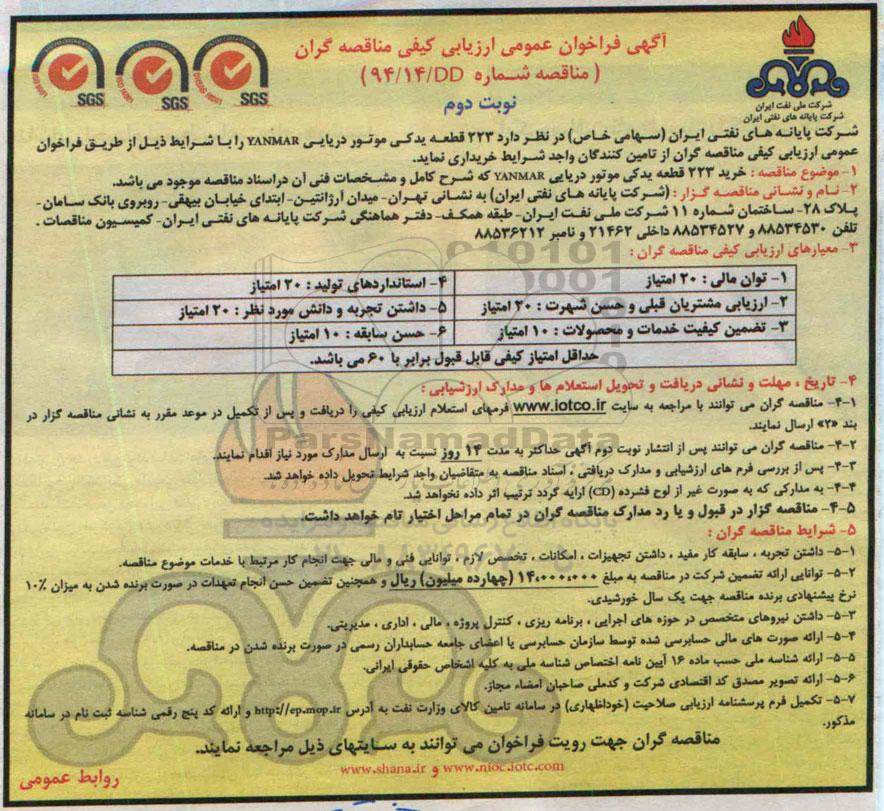 آگهی فراخوان عمومی ارزیابی کیفی مناقصه گران
(مناقصه شماره ۹۴/۱۴/DD)
نوبت دوم
شرکت ملی نفت ایران
شرکت پایانه های نفتی ایران
SGS
SGS
SGS
شرکت پایانه های نفتی ایران (سهامی خاص) در نظر دارد ۲۲۳ قطعه یدکی موتور دریایی YANMAR را با شرایط ذیل از طریق فراخوان
عمومی ارزیابی کیفی مناقصه گران از تامین کنندگان واجد شرایط خریداری نماید.
۱- موضوع مناقصه : خرید ۲۲۳ قطعه یدکی موتور دریایی YANMAR که شرح کامل و مشخصات فنی آن دراسناد مناقصه موجود می باشد.
۲- نام و نشانی مناقصه گزار : (شرکت پایانه های نفتی ایران) به نشانی تهران- میدان آرژانتین- ابتدای خیابان بیهقی- روبروی بانک سامان-
پلاک ۲۸- ساختمان شماره ۱۱ شرکت ملی نفت ایران- طبقه همکف- دفتر هماهنگی شرکت پایانه های نفتی ایران- کمیسیون مناقصات .
تلفن ۸۸۵۳۴۵۳۰ و ۸۸۵۳۴۵۲۷ داخلی ۲۱۴۶۲ و نامبر ۸۸۵۳۶۲۱۲
۳- معیارهای ارزیابی کیفی مناقصه گران :
۱- توان مالی : ۲۰ امتیاز
۴- استانداردهای تولید : ۲۰ امتیاز
۲- ارزیابی مشتریان قبلی و حسن شهرت : ۲۰ امتیاز
۵- داشتن تجربه و دانش مورد نظر : ۲۰ امتیاز
۳- تضمین کیفیت خدمات و محصولات : ۱۰ امتیاز
۶- حسن سابقه : ۱۰ امتیاز
حداقل امتیاز کیفی قابل قبول برابر با ۶۰ می باشد.
۴- تاریخ ، مهلت و نشانی دریافت و تحویل استعلام ها و مدارک ارزشیابی :
۴-۱- مناقصه گران می توانند با مراجعه به سایت www.iotco.ir فرمهای استعلام ارزیابی کیفی را دریافت و پس از تکمیل در موعد مقرر به نشانی مناقصه گزار در
بند «۲» ارسال نمایند.
۴-۲- مناقصه گران می توانند پس از انتشار نوبت دوم آگهی حداکثر به مدت ۱۴ روز نسبت به ارسال مدارک مورد نیاز اقدام نمایند.
۴-۳- پس از بررسی فرم های ارزشیابی و مدارک دریافتی ، اسناد مناقصه به متقاضیان واجد شرایط تحویل داده خواهد شد.
۴-۴- به مدارکی که به صورت غیر از لوح فشرده (CD) ارایه گردد ترتیب اثر داده نخواهد شد.
۴-۵- مناقصه گزار در قبول و یا رد مدارک مناقصه گران در تمام مراحل اختیار تام خواهد داشت.
۵- شرایط مناقصه گران :
۵-۱- داشتن تجربه ، سابقه کار مفید ، داشتن تجهیزات ، امکانات ، تخصص لازم ، توانایی فنی و مالی جهت انجام کار مرتبط با خدمات موضوع مناقصه.
۵-۲- توانایی ارائه تضمین شرکت در مناقصه به مبلغ ۱۴،۰۰۰،۰۰۰ (چهارده میلیون) ریال و همچنین تضمین حسن انجام تعهدات در صورت برنده شدن به میزان ۱۰٪
نرخ پیشنهادی برنده مناقصه جهت یک سال خورشیدی.
۵-۳- داشتن نیروهای متخصص در حوزه های اجرایی ، برنامه ریزی ، کنترل پروژه ، مالی ، اداری ، مدیریتی.
۵-۴- ارائه صورت های مالی حسابرسی شده توسط سازمان حسابرسی یا اعضای جامعه حسابداران رسمی در صورت برنده شدن در مناقصه.
۵-۵- ارائه شناسه ملی حسب ماده ۱۶ آیین نامه اختصاص شناسه ملی به کلیه اشخاص حقوقی ایرانی.
۵-۶- ارائه تصویر مصدق کد اقتصادی شرکت و کدملی صاحبان امضاء مجاز.
۵-۷- تکمیل فرم پرسشنامه ارزیابی صلاحیت (خوداظهاری) در سامانه تامین کالای وزارت نفت به آدرس http://ep.mop.ir و ارائه کد پنج رقمی شناسه ثبت نام در سامانه
مذکور.
مناقصه گران جهت رویت فراخوان می توانند به سایتهای ذیل مراجعه نمایند.
www.nioc.iotc.com و www.shana.ir
روابط عمومی
ParsNamadData